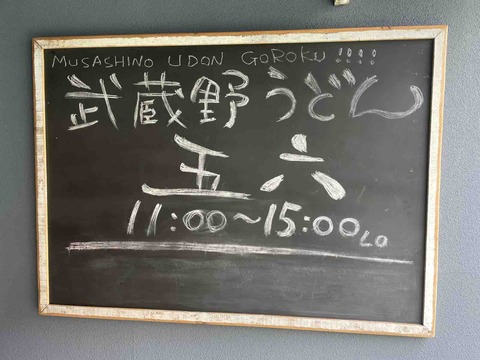 MUSASHINO UDON GOROKU !!!!
武蔵野うどん
五六
11:00~15:00LO